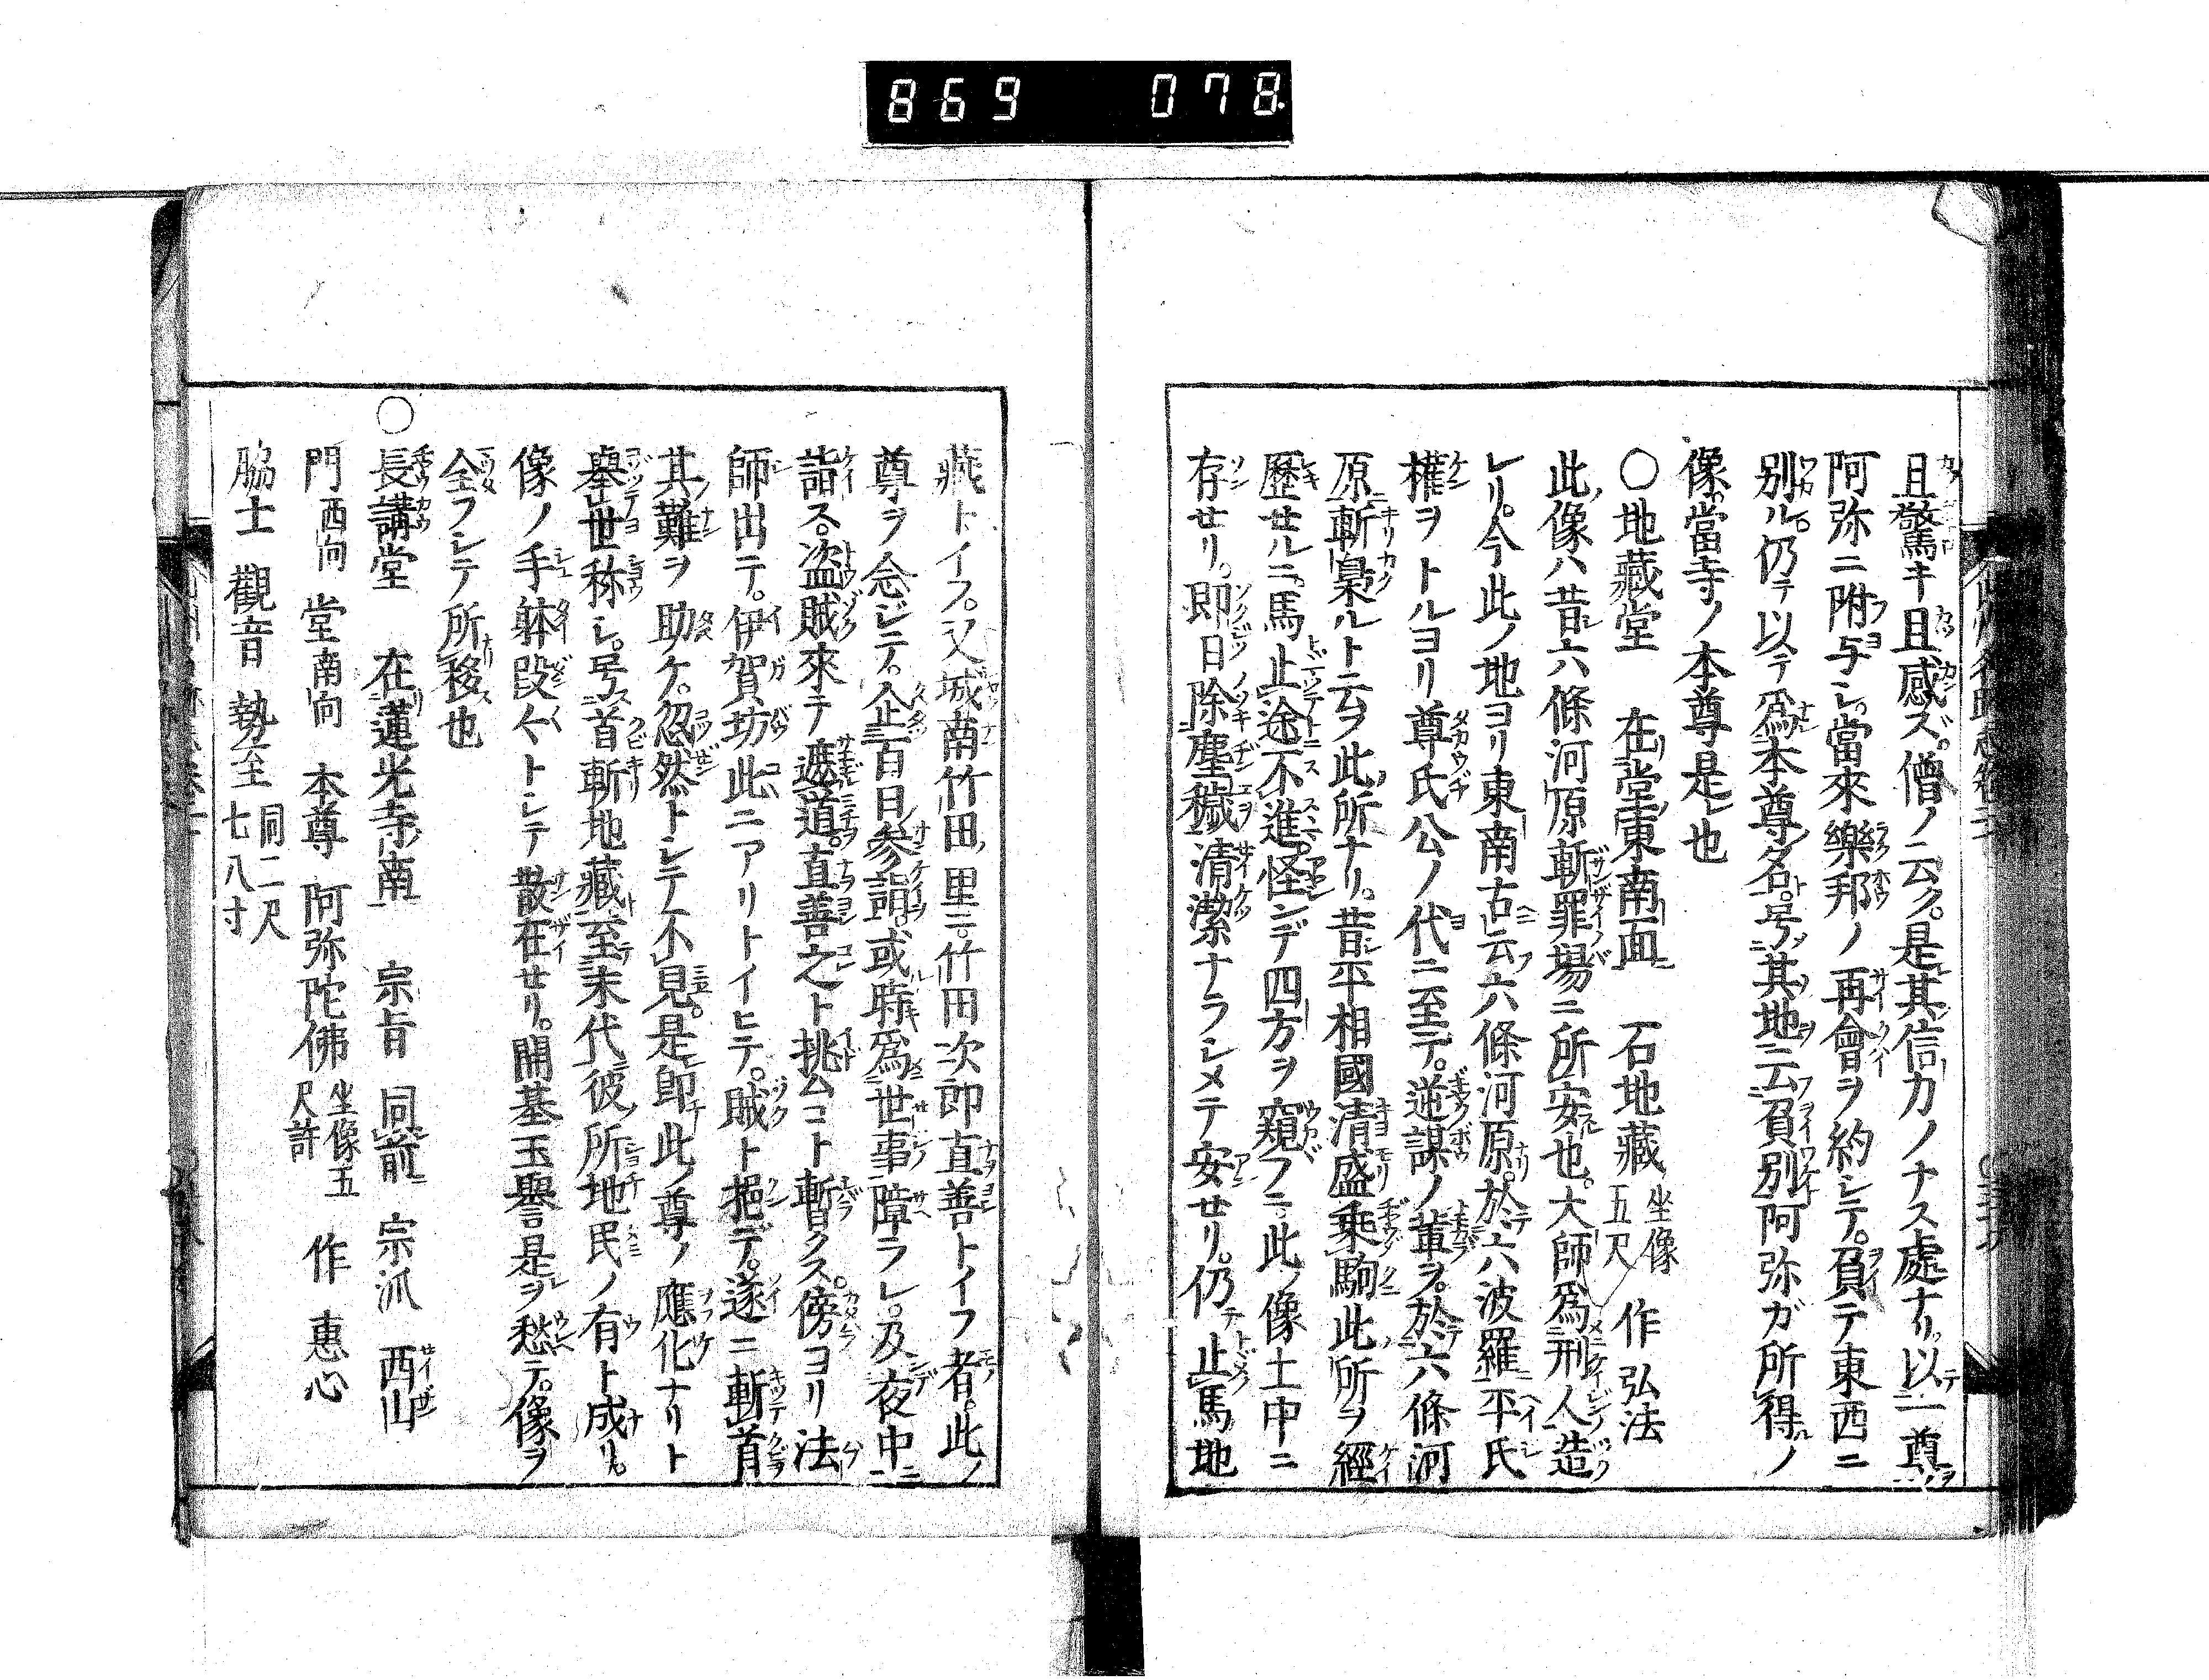 869 078
且驚キ且感ズ。僧ノ云ク。是其信力ノナス處ナリ。以二一尊ヲ
阿弥ニ附与シ。當來樂邦ノ再會ヲ約シテ。負テ東西ニ
別ル。仍テ以テ爲本尊ノ名。号其地云負別阿弥ガ所得ノ
像。當寺ノ本尊是也
〇地藏堂 在堂東南面 石地藏 坐像五尺 作 弘法
此像ハ昔六條河原斬罪場ニ所安也。大師爲刑人造
レリ。今此ノ地ヨリ東南古云六條河原。於六波羅平氏
權ヲトルヨリ尊氏公ノ代ニ至テ。逆謀ノ輩ヲ。於六條河
原斬梟ルト云フ此所ナリ。昔平相國清盛乗駒此所ヲ經
歷セルニ。馬止途不進。怪ンデ四方ヲ窺フニ。此ノ像土中ニ
存セリ。即日除塵穢清潔ナラシメテ安セリ。仍止馬地
藏トイフ。又城南竹田ノ里ニ。竹田次郎直善トイフ者。此ノ
尊ヲ念ジテ。企百日參詣。或時爲世事障ラレ。及夜中ニ
詣ス。盗賊來テ遮道。直善之ト挑ムコト暫クス。傍ヨリ法
師出テ。伊賀坊此ニアリトイヒテ。賊ト挹デ。遂ニ斬首
其難ヲ助ケ。忽然トシテ不見。是即此ノ尊ノ應化ナリト
舉世称シ。号首斬地藏。至末代彼所地民ノ有ト成リ。
像ノ手躰段〱トシテ散在セリ。開基玉譽是ヲ愁テ。像ヲ
全フシテ所移也
〇長講堂 在蓮光寺南 宗旨 同前 宗派 西山
門 西向 堂 南向 本尊 阿弥陀佛 坐像五尺許 作 惠心
脇士 觀音 勢至 同二尺七八寸